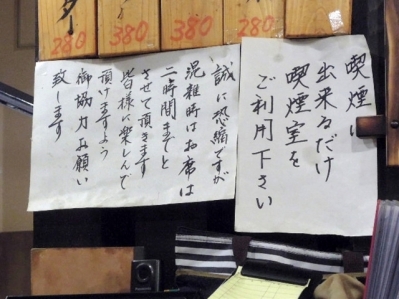 280
380
380
280
喫煙は
出来るだけ
喫煙室を
ご利用下さい
誠に恐縮ですが
混雑時はお席は
二時間までと
させて頂きます
皆様に楽しんで
頂けますよう
御協力お願い
致します